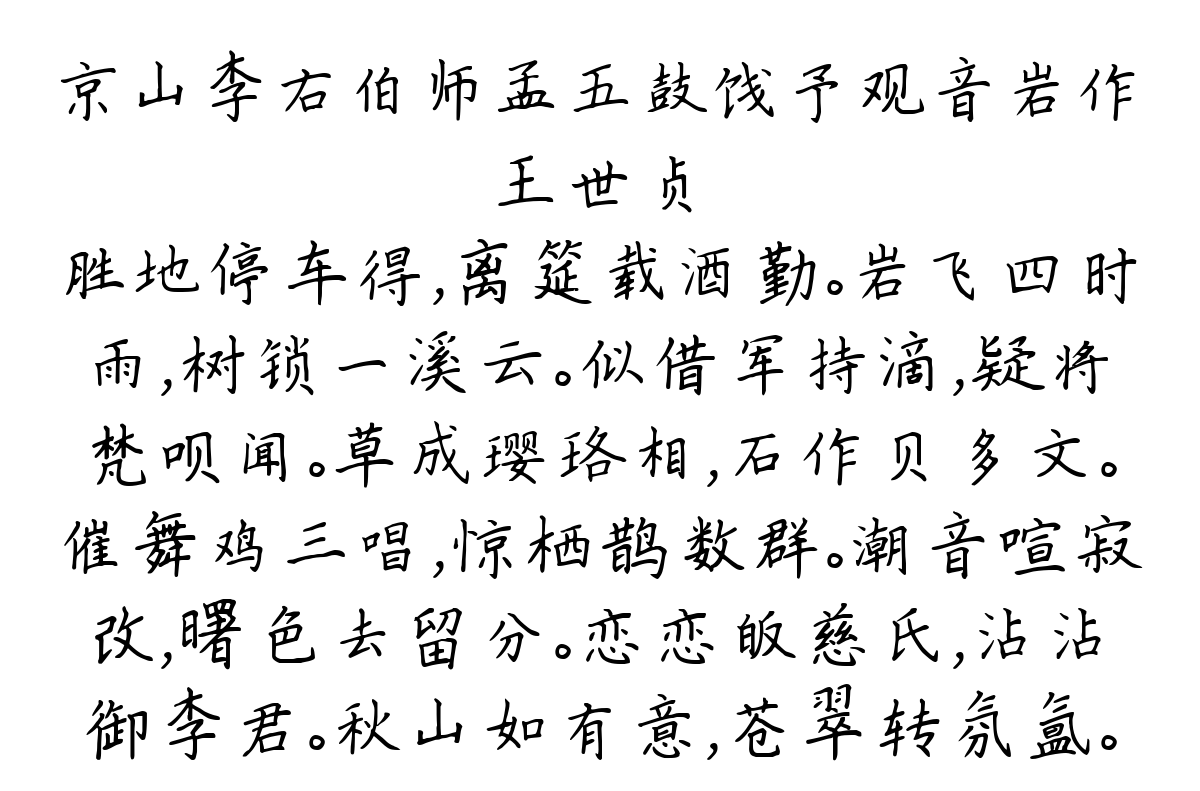 京山李右伯师孟五鼓饯予观音岩作
王世贞
胜地停车得,离筵载酒勤。岩飞四时
雨,树锁一溪云。似借军持滴,疑将
梵呗闻。草成璎珞相,石作贝多文。
催舞鸡三唱,惊栖鹊数群。潮音喧寂
改,曙色去留分。恋恋皈慈氏,沾沾
御李君。秋山如有意,苍翠转氛氲。